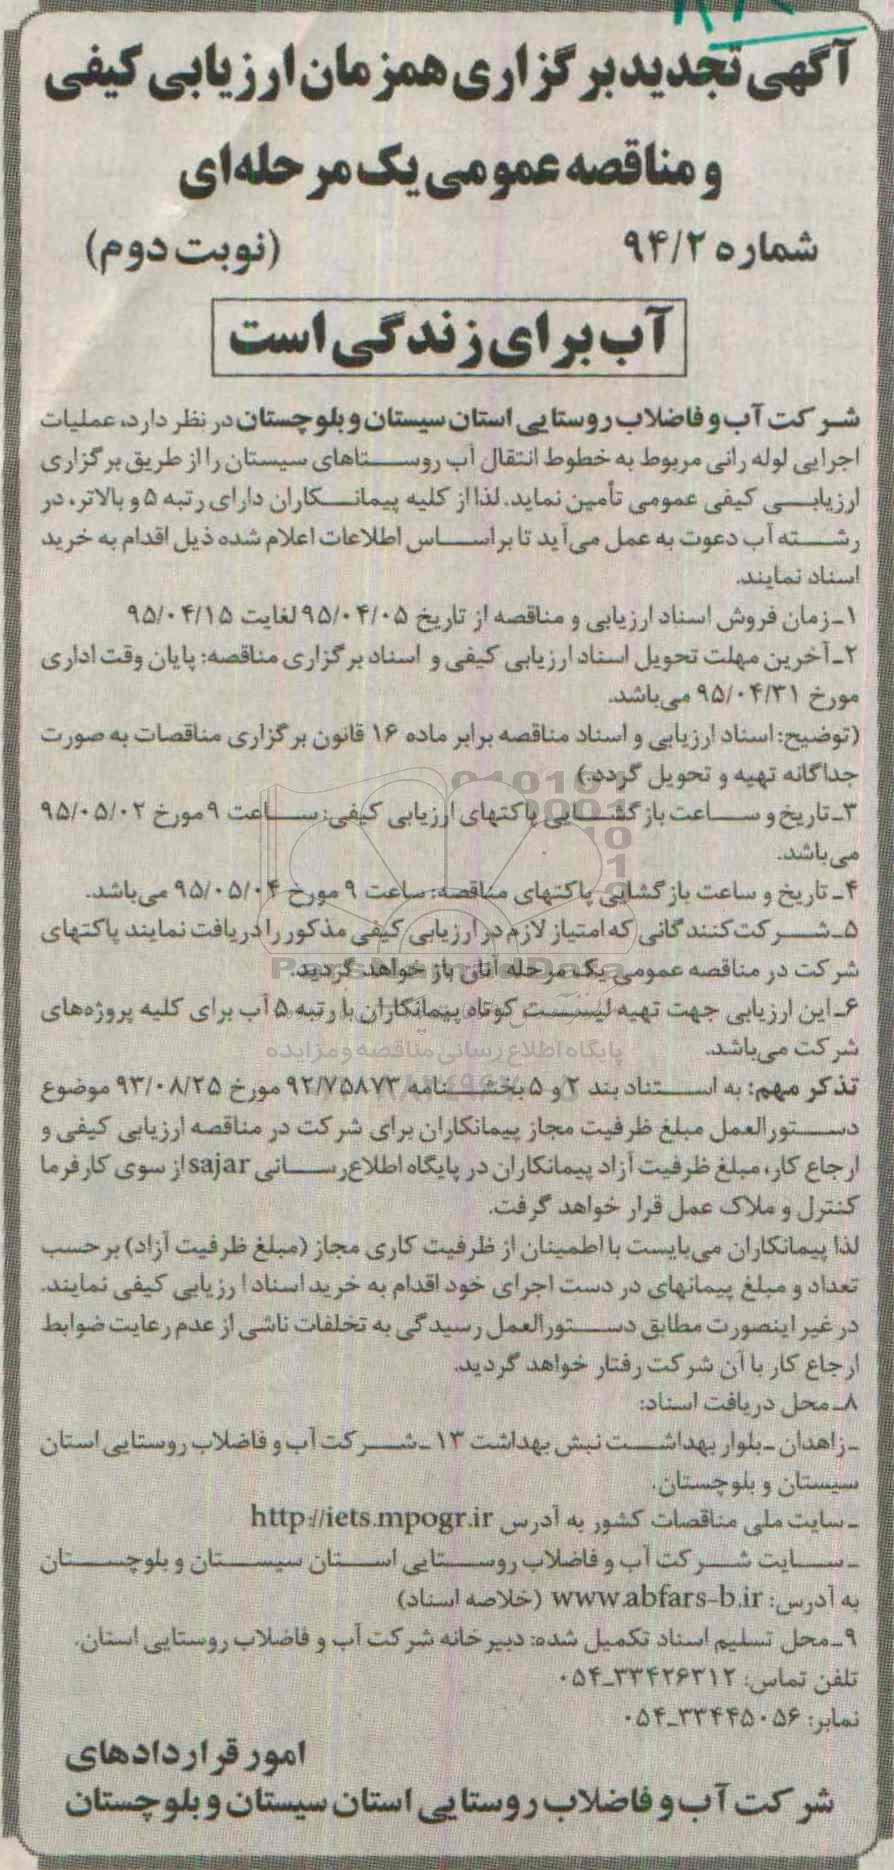 آگهی تجدید برگزاری همزمان ارزیابی کیفی
و مناقصه عمومی یک مرحله‌ای
شماره ۹۴/۲ (نوبت دوم)
آب برای زندگی است
شرکت آب و فاضلاب روستایی استان سیستان و بلوچستان در نظر دارد، عملیات
اجرایی لوله رانی مربوط به خطوط انتقال آب روستاهای سیستان را از طریق برگزاری
ارزیابی کیفی عمومی تأمین نماید. لذا از کلیه پیمانکاران دارای رتبه ۵ و بالاتر، در
رشته آب دعوت به عمل می‌آید تا براساس اطلاعات اعلام شده ذیل اقدام به خرید
اسناد نمایند.
۱ـ زمان فروش اسناد ارزیابی و مناقصه از تاریخ ۹۵/۰۴/۰۵ لغایت ۹۵/۰۴/۱۵
۲ـ آخرین مهلت تحویل اسناد ارزیابی کیفی و اسناد برگزاری مناقصه: پایان وقت اداری
مورخ ۹۵/۰۴/۳۱ می‌باشد.
(توضیح: اسناد ارزیابی و اسناد مناقصه برابر ماده ۱۶ قانون برگزاری مناقصات به صورت
جداگانه تهیه و تحویل گردد.)
۳ـ تاریخ و ساعت بازگشایی پاکتهای ارزیابی کیفی: ساعت ۹ مورخ ۹۵/۰۵/۰۲
می‌باشد.
۴ـ تاریخ و ساعت بازگشایی پاکتهای مناقصه: ساعت ۹ مورخ ۹۵/۰۵/۰۴ می‌باشد.
۵ـ شرکت‌کنندگانی که امتیاز لازم در ارزیابی کیفی مذکور را دریافت نمایند پاکتهای
شرکت در مناقصه عمومی یک مرحله آنان باز خواهد گردید.
۶ـ این ارزیابی جهت تهیه لیست کوتاه پیمانکاران با رتبه ۵ آب برای کلیه پروژه‌های
شرکت می‌باشد.
پایگاه اطلاع رسانی مناقصه و مزایده
تذکر مهم: به استناد بند ۲ و ۵ بخشنامه ۹۲/۷۵۸۷۳ مورخ ۹۳/۰۸/۲۵ موضوع
دستورالعمل مبلغ ظرفیت مجاز پیمانکاران برای شرکت در مناقصه ارزیابی کیفی و
ارجاع کار، مبلغ ظرفیت آزاد پیمانکاران در پایگاه اطلاع‌رسانی sajar از سوی کارفرما
کنترل و ملاک عمل قرار خواهد گرفت.
لذا پیمانکاران می‌بایست با اطمینان از ظرفیت کاری مجاز (مبلغ ظرفیت آزاد) بر حسب
تعداد و مبلغ پیمانهای در دست اجرای خود اقدام به خرید اسناد ارزیابی کیفی نمایند.
در غیر اینصورت مطابق دستورالعمل رسیدگی به تخلفات ناشی از عدم رعایت ضوابط
ارجاع کار با آن شرکت رفتار خواهد گردید.
۸ـ محل دریافت اسناد:
ـ زاهدان ـ بلوار بهداشت نبش بهداشت ۱۳ ـ شرکت آب و فاضلاب روستایی استان
سیستان و بلوچستان.
ـ سایت ملی مناقصات کشور به آدرس http://iets.mpogr.ir
ـ سایت شرکت آب و فاضلاب روستایی استان سیستان و بلوچستان
به آدرس: www.abfars-b.ir (خلاصه اسناد)
۹ـ محل تسلیم اسناد تکمیل شده: دبیرخانه شرکت آب و فاضلاب روستایی استان.
تلفن تماس: ۳۳۴۲۶۳۱۲ـ۰۵۴
نمابر: ۳۳۴۴۵۰۵۶ـ۰۵۴
امور قراردادهای
شرکت آب و فاضلاب روستایی استان سیستان و بلوچستان